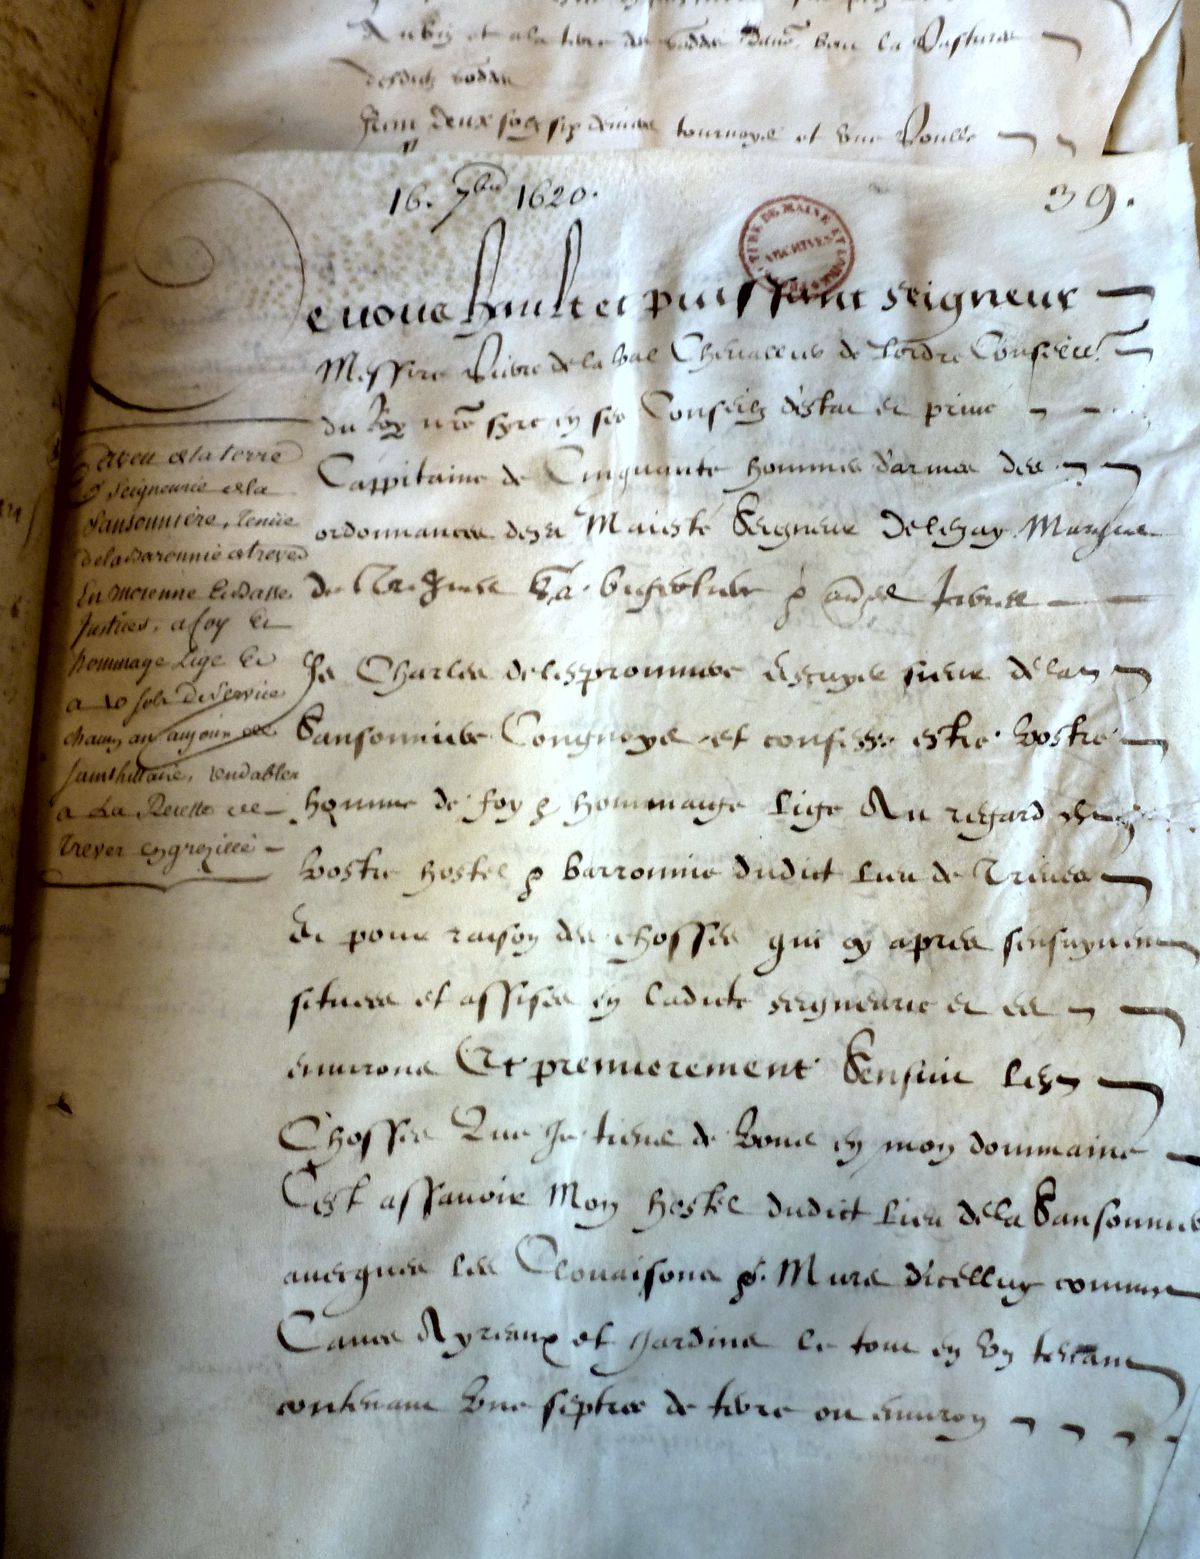 et a la terre de
desdictz
Item deux solz six deniers tournoys et une Poulle
16. 7bre 1620.
39.
ARCHIVES
De vous hault et puissant seigneur
Messire Pierre de la Val Chevallier de lordre Conseiller
du Roy nre syre en ses Conseilz destat et privé
Cappitaine de Cinquante hommes darmes des
ordonnances de sa Maiesté Seigneur de lezay
de Treves
Je Charles de lespronniere Escuyer sieur de la
Sansonniere Congnoys et confesse estre vostre
homme de foy & hommaige lige Au regard de
vostre hostel & barronnie dudict lieu de Treves
Et pour raison des chosses qui cy apres sensuyvent
situees et assises en ladicte seigneurie et es
environs Et premierement Sensuit les
Chosses Que Je tiens de vous en mon dommaine
Cest assavoir Mon hostel dudict lieu de la Sansonniere
avecques les Clouaisons & Murs dicelluy comme
Caves Ayreaux et Jardins le tout en un tenant
contenant une septree de terre ou environ
Aveu de la terre
& Seigneurie de la
Sansonniere, tenue
de la Baronnie de treves
En moienne Et Basse
Justices, a foy Et
hommage Lige Et
a v sols De Service
chacun an au jour de
saint hillaire, rendables
a La Recette de
Treves en grezillé